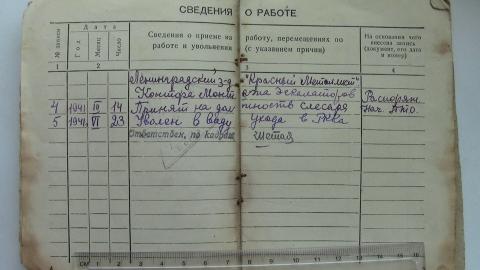 СВЕДЕНИЯ О РАБОТЕ
№ записи
Дата
Год
Месяц
Число
Сведения о приеме на работу, перемещениях по
работе и увольнении (с указанием причин)
На основании чего
внесена запись
(документ, его дата
и номер)
1 2 3 4
Ленинградский з-д "Красный Металлист"
Контора Монтажа Эскалаторов
4 1941 III 14 Принят на должность слесаря Распоряж.
Нач. 
5 1941 VI 23 Уволен в виду ухода в РККА
Ответствен. по кадрам
СМ 1 2 3 4 5 6 7 8 9 10 11 12 13 14 15 16